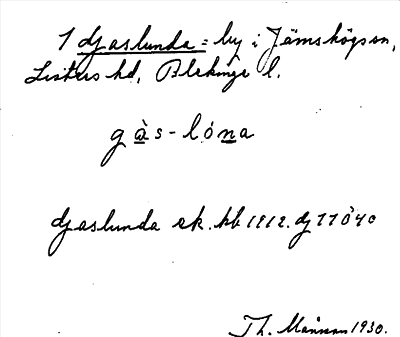 1 Gaslunda = by i Jämshög sn,
Listers hd, Blekinge l.
gàs-lóna
Gaslunda ek. kb 1912. dj 11 0 40
Th. Månsson 1930.